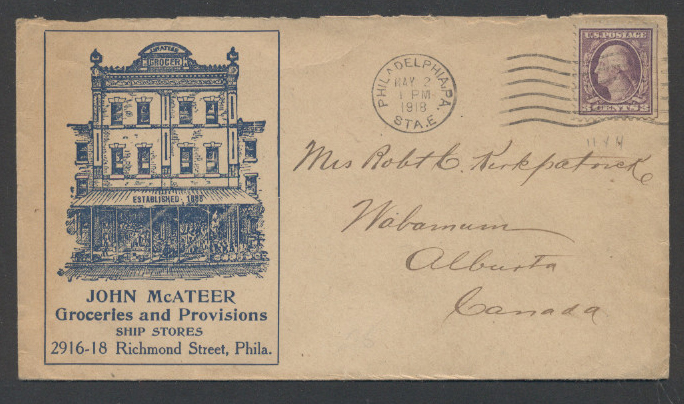 McATEER
GROCER
ESTABLISHED 1888
JOHN McATEER
Groceries and Provisions
SHIP STORES
2916-18 Richmond Street, Phila.
PHILADELPHIA, PA.
MAY 2
1 PM
1918
STA. E
U.S. POSTAGE
3 CENTS 3
Mrs Robt C. Kirkpatrick
Wabamum
Alberta
Canada